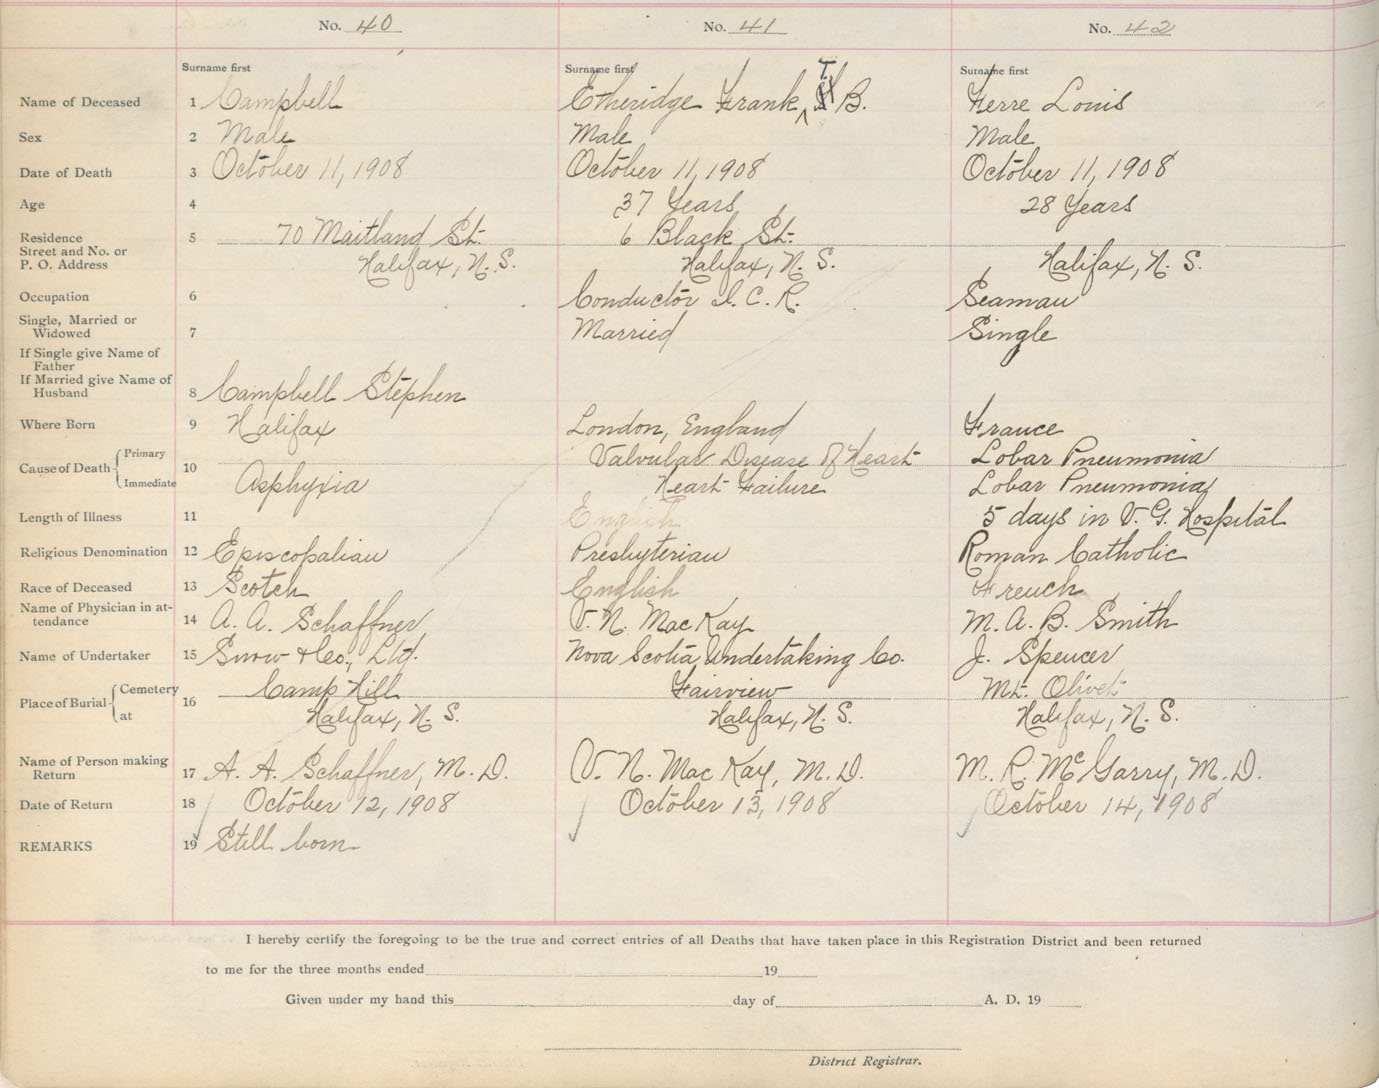 No. 40 No. 41 No. 42
Surname first Surname first Surname first
Name of Deceased 1 Campbell Etheridge Frank T. B. Fierre Louis
Sex 2 Male Male Male
Date of Death 3 October 11, 1908 October 11, 1908 October 11, 1908
Age 4 37 Years 28 Years
Residence 5 70 Maitland St. 6 Black St.
Street and No. or
P. O. Address Halifax, N. S. Halifax, N. S. Halifax, N. S.
Occupation 6 Conductor I. C. R. Seaman
Single, Married or
Widowed 7 Married Single
If Single give Name of
Father
If Married give Name of
Husband 8 Campbell Stephen
Where Born 9 Halifax London, England France
Cause of Death Primary 10 Valvular Disease Of Heart Lobar Pneumonia
Immediate Asphyxia Heart Failure Lobar Pneumonia
Length of Illness 11 English 5 days in V. G. Hospital
Religious Denomination 12 Episcopalian Presbyterian Roman Catholic
Race of Deceased 13 Scotch English French
Name of Physician in at-
tendance 14 A. A. Schaffner V. N. MacKay M. A. B. Smith
Name of Undertaker 15 Snow & Co., Ltd. Nova Scotia Undertaking Co. J. Spencer
Place of Burial Cemetery 16 Camp Hill Fairview Mt. Olivet
at Halifax, N. S. Halifax, N. S. Halifax, N. S.
Name of Person making
Return 17 A. A. Schaffner, M. D. V. N. MacKay, M. D. M. R. McGarry, M. D.
Date of Return 18 October 12, 1908 October 13, 1908 October 14, 1908
REMARKS 19 Still born
I hereby certify the foregoing to be the true and correct entries of all Deaths that have taken place in this Registration District and been returned
to me for the three months ended 19
Given under my hand this day of A. D. 19
District Registrar.